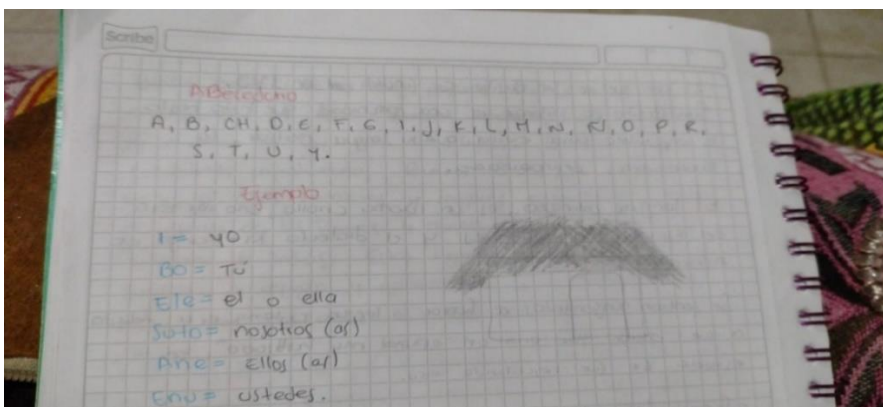 Scribe
Abecedario
A, B, CH, D, E, F, G, I, J, K, L, M, N, Ñ, O, P, R,
S, T, U, Y.
Ejemplo
I = yo
BO = Tú
Ele = el o ella
Suto = nosotros (as)
Ane = Ellos (as)
Enu = ustedes.